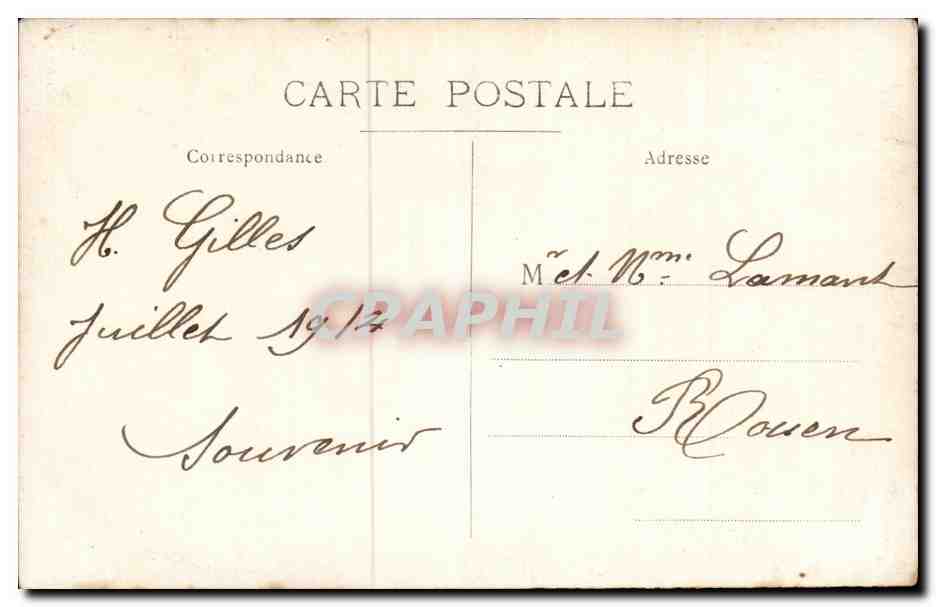 CARTE POSTALE
Correspondance
Adresse
H. Gilles
Juillet 1914
Souvenir
Mr et Mme Lamant
Rouen
CPAPHIL